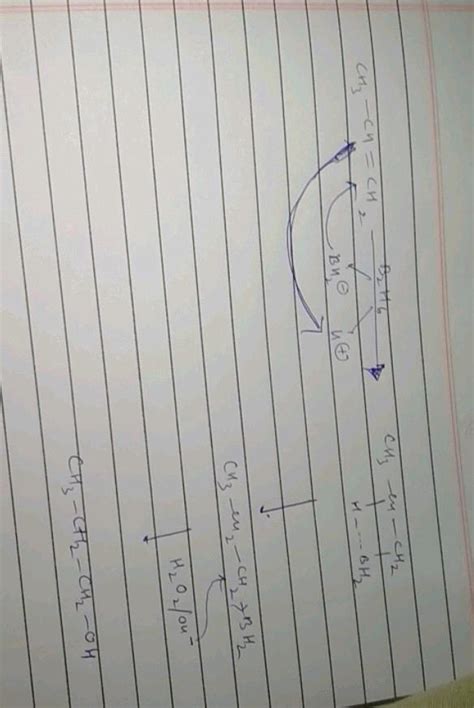 CH3 - CH = CH2 B2H6 CH3 - CH - CH2
BH2⊖ H⊕ H ---- BH2
CH3 - CH2 - CH2 > BH2
H2O2/OH-
CH3 - CH2 - CH2 - OH